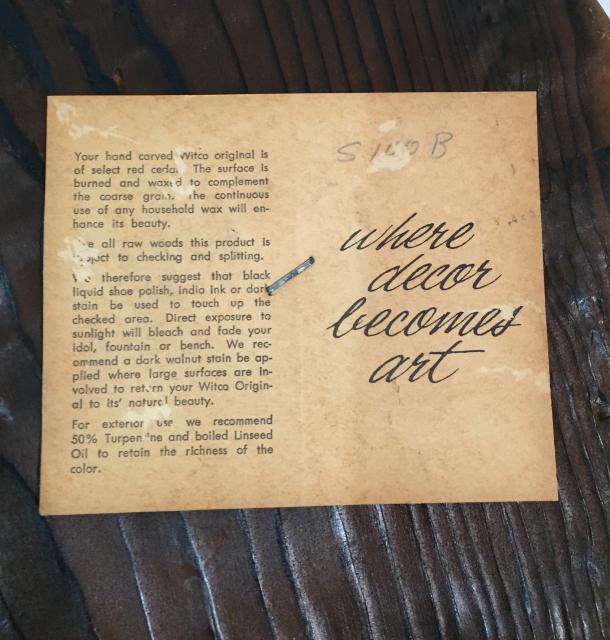 Your hand carved Witco original is
of select red cedar. The surface is
burned and waxed to complement
the coarse grain. The continuous
use of any household wax will en-
hance its beauty.
all raw woods this product is
to checking and splitting.
We therefore suggest that black
liquid shoe polish, india ink or dark
stain be used to touch up the
checked area. Direct exposure to
sunlight will bleach and fade your
idol, fountain or bench. We rec-
ommend a dark walnut stain be ap-
plied where large surfaces are in-
volved to return your Witco Origin-
al to its' natural beauty.
For exterior use we recommend
50% Turpentine and boiled Linseed
Oil to retain the richness of the
color.
B
where
decor
becomes
art